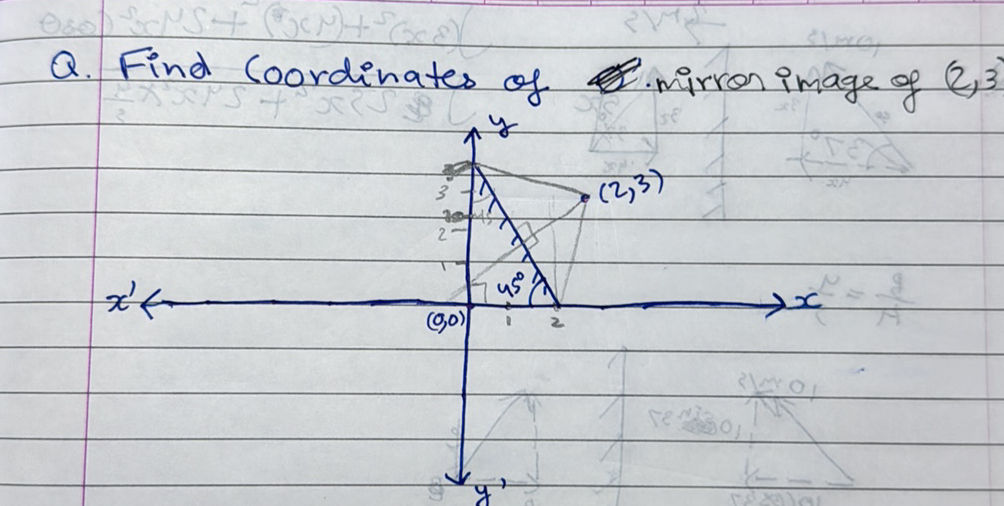 Q. Find Coordinates of mirror image of (2,3)
y
3
(2,3)
2
1
45°
x' x
(0,0) 1 2
y'